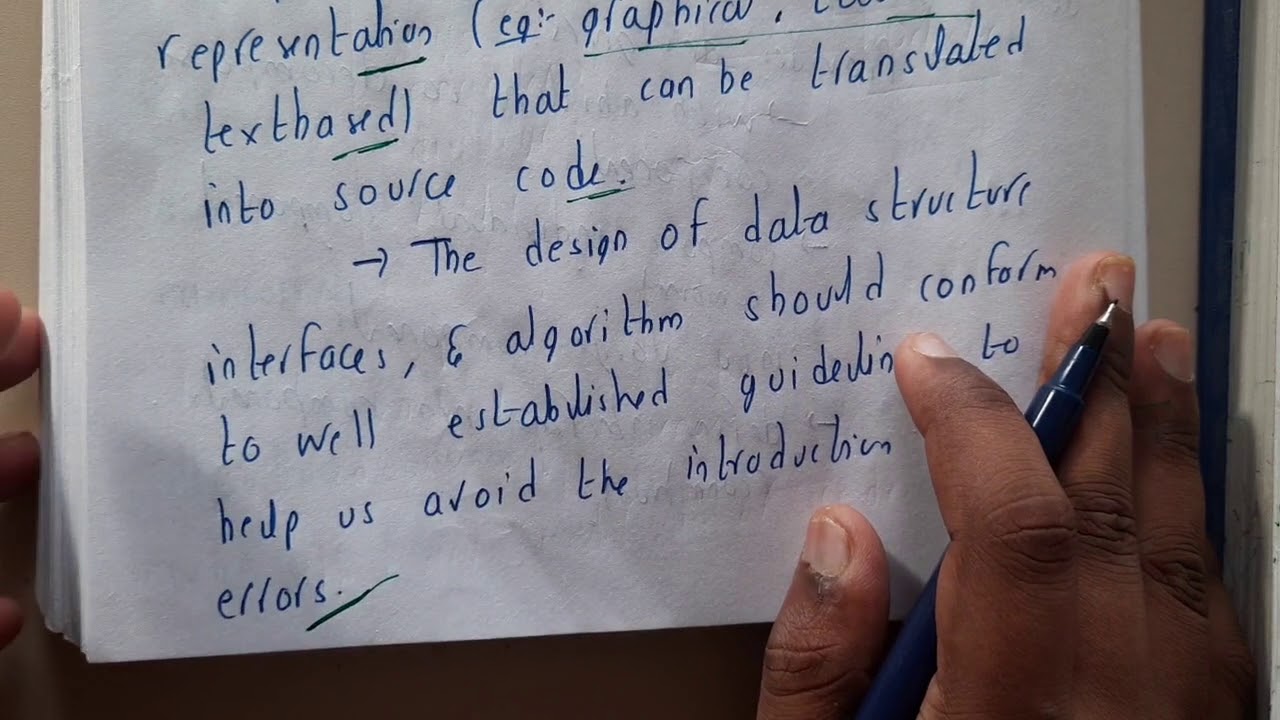 representation (eg:- graphical,
textbased) that can be translated
into source code.
→ The design of data structure
interfaces, & algorithm should conform
to well established guidelin to
help us avoid the introduction
errors.